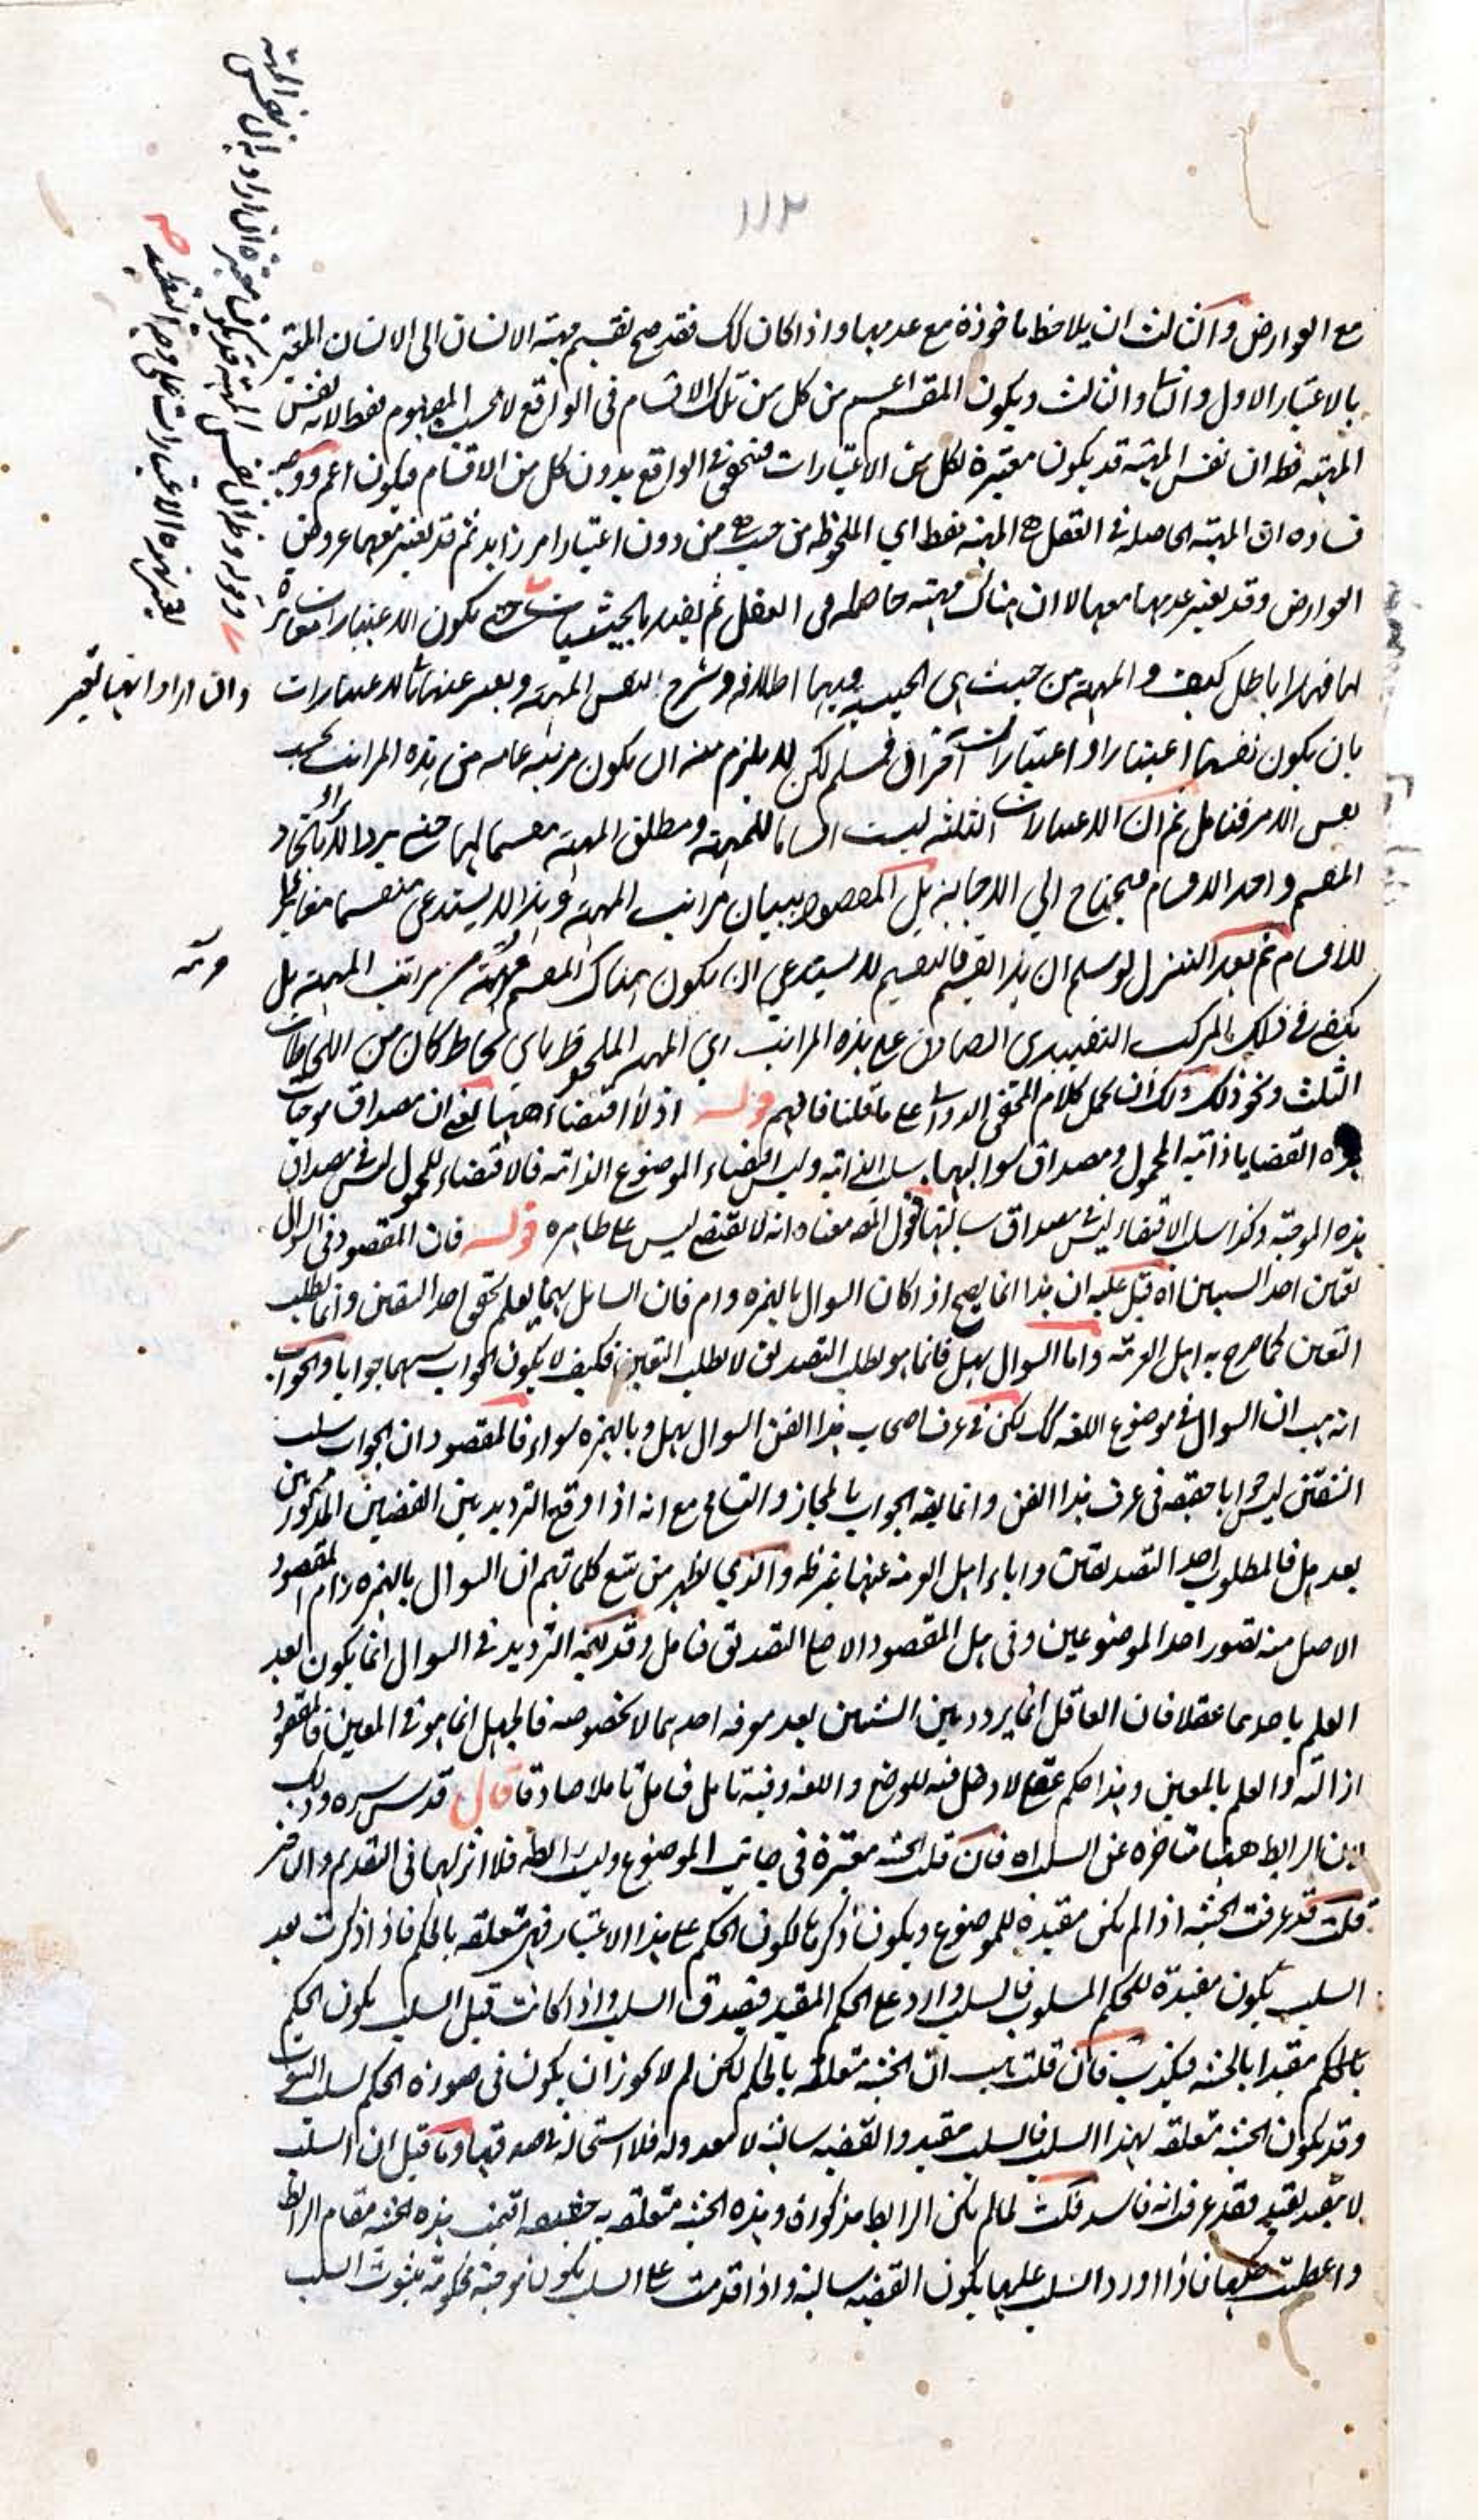 ١١٢
مع العوارض والثالث ان يلاحظ ماخوذة مع عدمها واذا كان كك فقد صح تقسيم مهية الانسان الى الانسان المعتبر
بالاعتبار الاول والثانى والثالث ويكون المقسم اعم من كل من تلك الاقسام فى الواقع لا بحسب المفهوم فقط لانه نفس
المهية فظ ان نفس المهية قد يكون معتبرة لكل من الاعتبارات فتحقق فى الواقع بدون كل من الاقسام فيكون اعم ووجه
فساده ان المهية الحاصلة فى العقل المهية فقط اي الملحوظة من حيث هى من دون اعتبار امر زايد ثم قد يعتبر معهما عروض
العوارض وقد يعتبر عدمها معها لا ان هناك مهية حاصلة فى العقل ثم يقيد بالحيثيات حتى يكون الاعتبارات مغايرة
لها فهذا باطل كيف والمهية من حيث هى الحيثية فيها اطلاقه وشرح لنفس المهية ويعبر عنها الاعتبارات
وان اراد انها تعتبر
بان يكون نفسها اعتبارا واعتبارات آخران فمسلم لكن لا يلزم منه ان يكون مرتبة عامة من هذه المراتب بحسب
نفس الامر فتامل ثم ان الاعتبارات الثلثة ليست اقساما للمهية ومطلق المهية مقسما لها حتى يرد الايراد باتحاد
المقسم واحد الاقسام فيحتاج الي الاجابة بل المقصود بيان مراتب المهية وهذا لا يستدعى مقسما مغايرا
للاقسام ثم بعد التنزل لو سلم ان هذا تقسيم فالتقسيم لا يستدعي ان يكون هناك المقسم مرتبة من مراتب المهية بل
مرتبة
يكفى فى ذلك المركب التقييدى الصادق على هذه المراتب اي المهية الملحوظة باي لحاظ كان من اللحاظات
الثلث ونحو ذلك ولك ان تحمل كلام المحقق الدوانى على ما قلنا فافهم قوله اذ لا اقتضاء ههنا يعنى ان مصداق موجبات
هذه القضايا ذاتية المحمول ومصداق سوالبها سلب الذاتية وليس اقتضاء الموضوع لذاته فالاقتضاء للمحمول ليس فى مصداق
هذه الموجبة وكذا سلب الاقتضاء ليس فى مصداق سالبتها فقول المص معناه انه لا يقتضى ليس على ظاهره قوله فان المقصود فى السؤال
تعيين احد السببين اه قيل عليه ان هذا انما يصح اذا كان السوال بالهمزة وام فان السائل بهما يعلم تحقق احد الشقين وانما يطلب
التعين كما صرح به اهل العربية واما السوال بهل فانما هو لطلب التصديق لا لطلب التعين فكيف لا يكون الجواب بسلبهما جوابا والجواب
انه هب ان السوال فى موضوع اللغة كك لكن فى عرف اصحاب هذا الفن السوال بهل وبالهمزة سواء فالمقصود ان الجواب بسلب
الشقين ليس جوابا حقيقة فى عرف هذا الفن وانما يقه الجواب بالمجاز والتسامح مع انه اذا وقع الترديد بين القضيتين المذكورتين
بعد هل فالمطلوب احد التصديقين واباء اهل العربية عنها غير ظ والذي يظهر من تتبع كلماتهم ان السوال بالهمزة وام المقصود
الاصلى منه تصور احد الموضوعين وفى هل المقصود الاصلى التصديق فتامل وقد يجيه الترديد فى السوال انما يكون بعد
العلم باحدهما عقلا فان العاقل انما يردد بين الشيئين بعد معرفة احدهما لا بخصوصه فالجهل انما هو فى المعين فالمقصود
ازالته والعلم بالمعين وهذا حكم عقلى لا دخل فيه للوضع واللغة وفيه تامل فتامل تاملا صادقا قال قدس سره وذلك
لان الرابط ههنا متاخرة عن السلب اه فان قلت الحيثية معتبرة فى جانب الموضوع وليست رابطة فلا اثر لها فى التقدم والتاخر
قلت قد عرفت الحيثية اذا لم يكن مقيدة للموضوع ويكون ذكرها لكون الحكم على هذا الاعتبار فهى متعلقة بالحكم فاذا ذكرت بعد
السلب يكون مقيدة للحكم المسلوب فالسلب وارد على الحكم المقيد فيصدق السلب واذا كانت قبل السلب يكون الحكم
بالحكم مقيدا بالحيثية فيكذب فان قلت هب ان الحيثية متعلقة بالحكم لكن لم لا يجوز ان يكون فى صورة الحكم لسلب الثبوت
وقد يكون الحيثية متعلقة بهذا السلب فالسلب مقيد والقضية سالبة لا معدولة فلا استحالة فى صدقها وما قيل ان السلب
لا يقيد بقيد فقد عرف انه فاسد قلت لما لم يكن الرابط مذكورة وهذه الحيثية متعلقة به حقيقة اقيمت هذه الحيثية مقام الرابط
واعطيت حكمها فاذا اورد السلب عليها يكون القضية سالبة واذا قدمت على السلب يكون موجبة محكومة بثبوت السلب